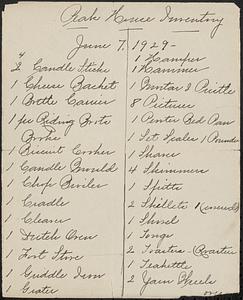 Peak House Inventory
June 7. 1929-
2 Candle Sticks
1 Cheese Basket
1 Bottle Carrier
1 pr Riding Boots
1 Broiler
1 Biscuit Cooker
1 Candle Mould
1 Chip Broiler
1 Cradle
1 Cleaver
1 Dutch Oven
1 Foot Stove
1 Griddle Iron
1 Grater
1 Hamper
1 Hammer
1 Mortar & Pestle
8 Pictures
1 Pewter Bed Pan
1 Set Scales 1 Pounder
1 Shaver
4 Skimmers
1 Spittle
2 Skillets
1 Shovel
1 Tongs
2 Toasters
1 Teakettle
2 Yarn Wheels
over